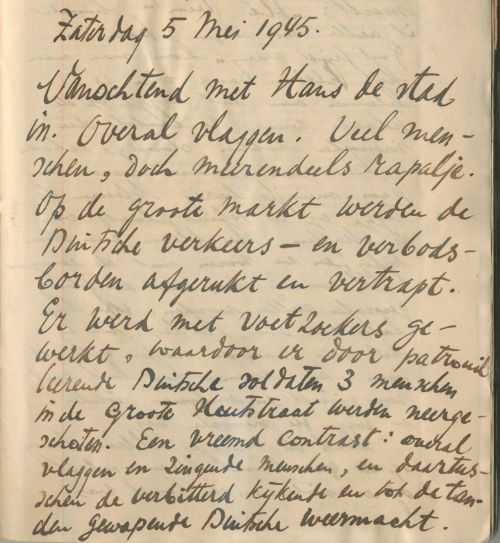 Zaterdag 5 Mei 1945.
Vanochtend met Hans de stad
in. Overal vlaggen. Veel men-
schen, doch meerendeels rapalje.
Op de groote markt werden de
Duitsche verkeers- en verbods-
borden afgerukt en vertrapt.
Er werd met voetzoekers ge-
werkt, waardoor er door patrouil
leerende Duitsche soldaten 3 menschen
in de Groote Houtstraat werden neerge-
schoten. Een vreemd contrast: overal
vlaggen en zingende menschen, en daartus-
schen de verbitterd kijkende en tot de tan-
den gewapende Duitsche weermacht.